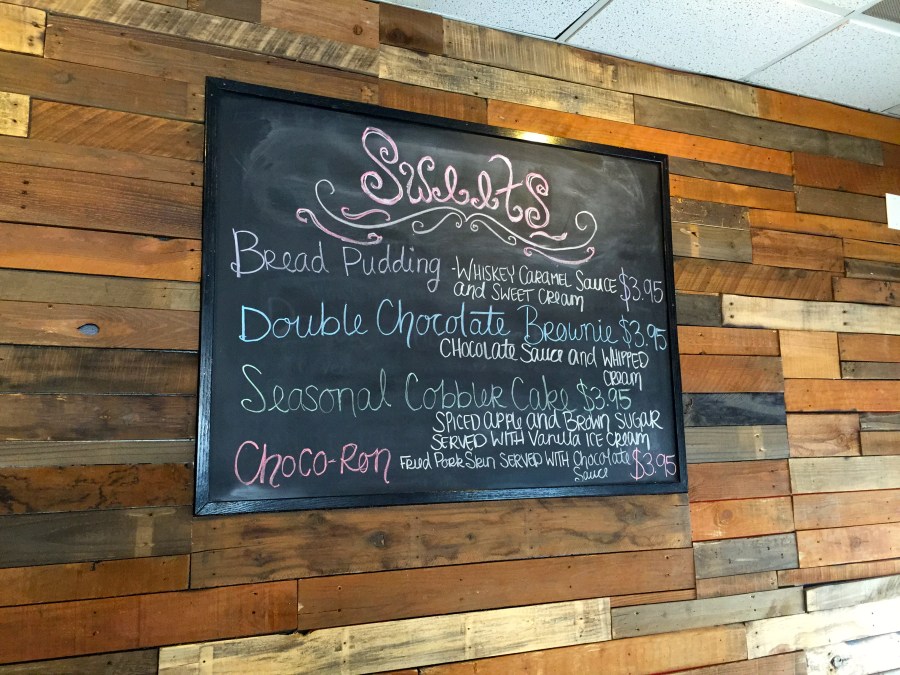 Sweets
Bread Pudding -Whiskey Caramel Sauce $3.95
and Sweet Cream
Double Chocolate Brownie $3.95
Chocolate Sauce and Whipped
Cream
Seasonal Cobbler Cake $3.95
Spiced Apple and Brown Sugar
Served with Vanilla Ice Cream
Choco-Ron Fried Pork Skin Served with Chocolate $3.95
Sauce